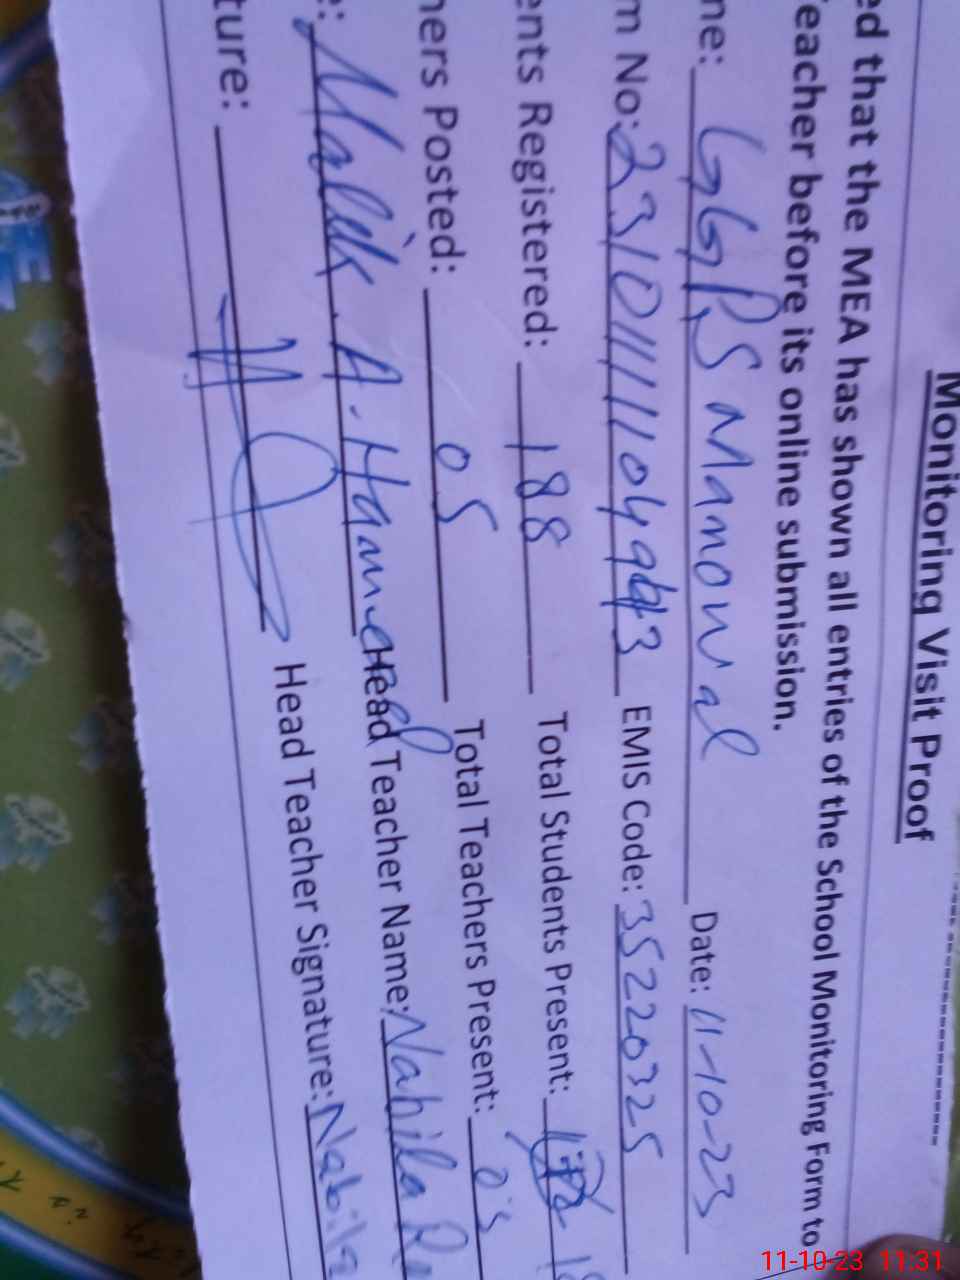 Monitoring Visit Proof
ed that the MEA has shown all entries of the School Monitoring Form to
Teacher before its online submission.
ne: GGPS Manowal Date: 11-10-23
m No: EMIS Code: 35220325
ents Registered: 188 Total Students Present:
hers Posted: 05 Total Teachers Present: 05
e: Malik A. Hameed Head Teacher Name: Nahila
ture: Head Teacher Signature: Nabila
11-10-23 11:31